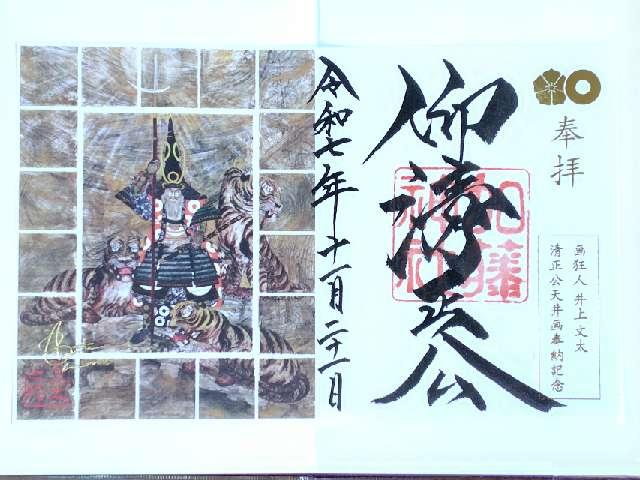 奉拝
画狂人 井上文太
清正公天井画奉納記念
仰清正公
加藤
神社
令和七年十一月二十一日